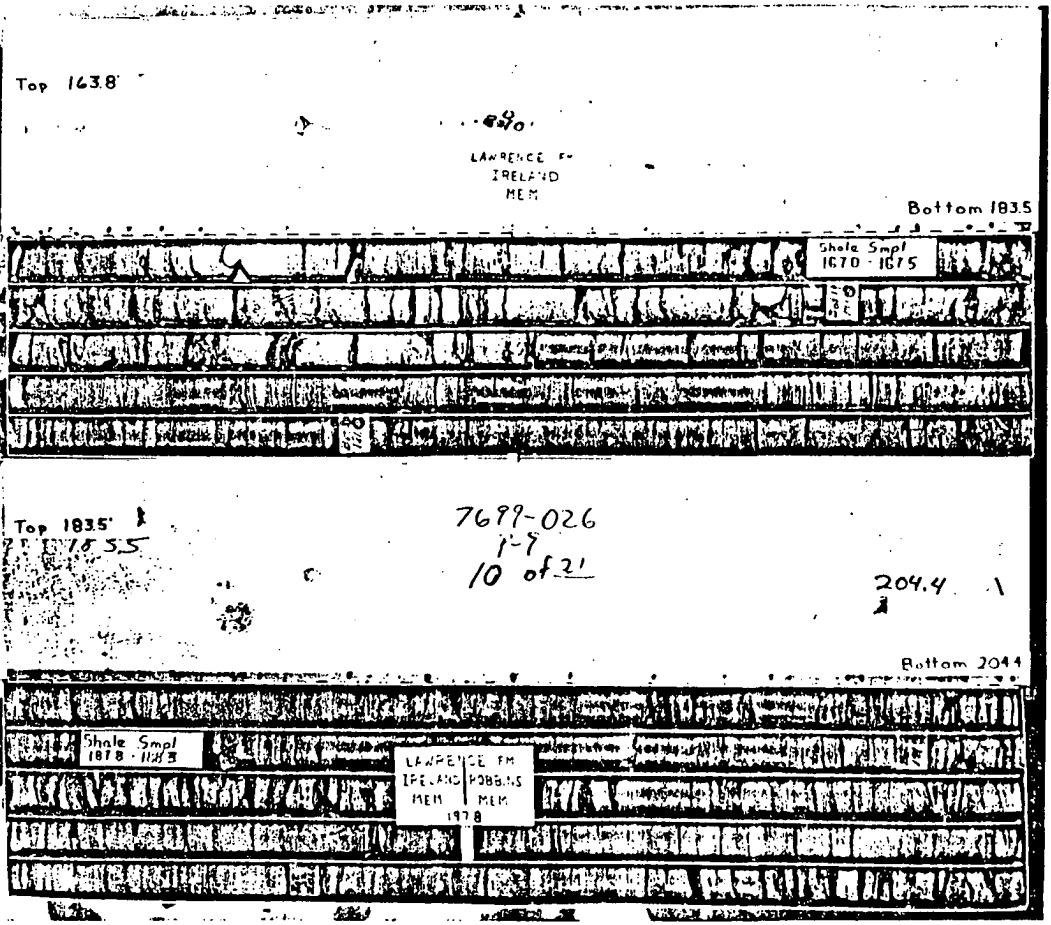 Top 163.8'
LAWRENCE FM
IRELAND
MEM
Bottom 183.5
Shale Smpl
167.0 - 167.5
Top 183.5'
185.5
7699-026
10 of 21
204.4
Bottom 204.4
Shale Smpl
187.8 - 188.3
LAWRENCE FM
IRELAND ROBBINS
MEM MEM
197.8